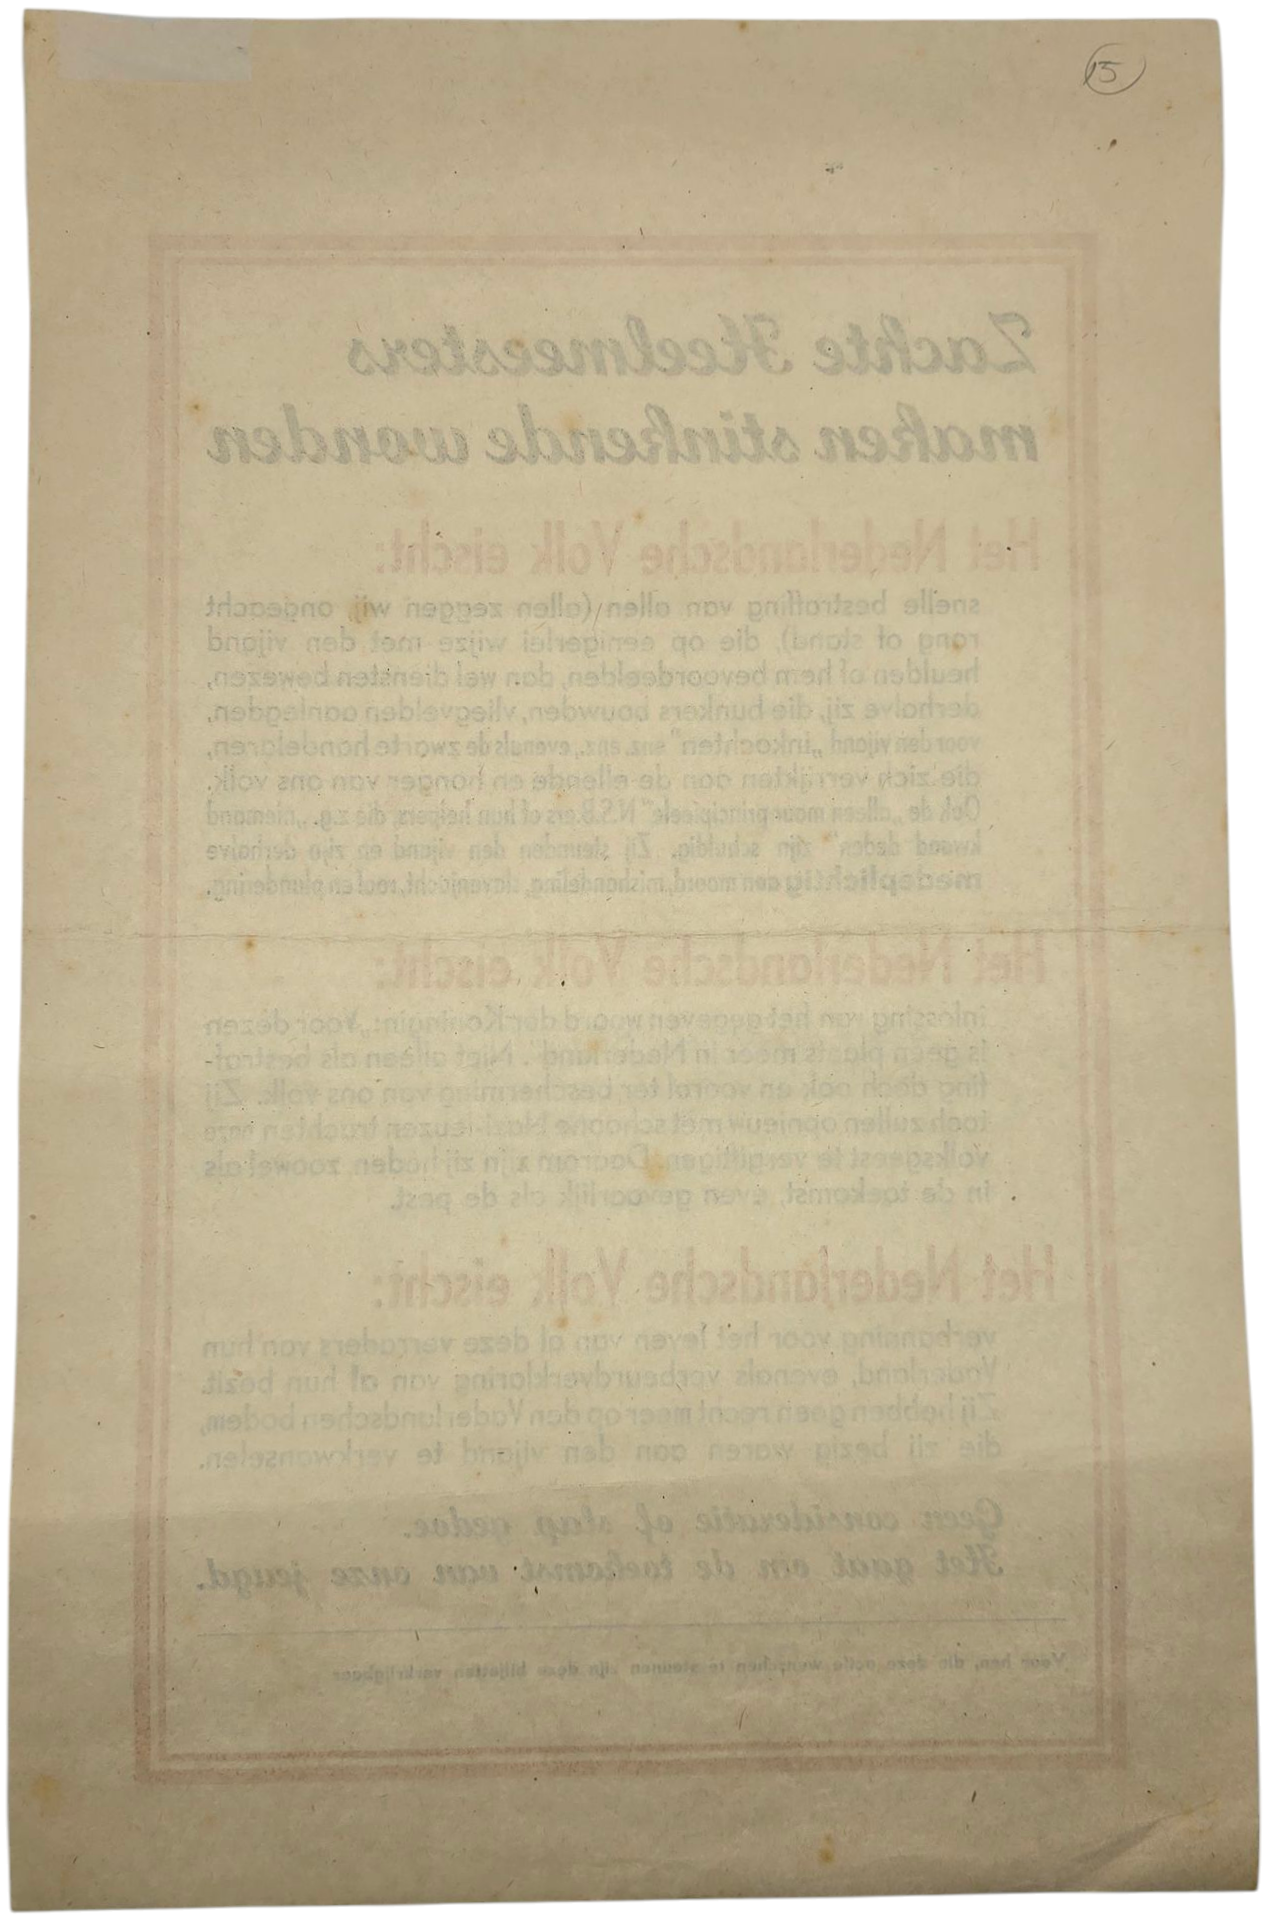 15
Zachte Heelmeesters
maken stinkende wonden
Het Nederlandsche Volk eischt:
snelle bestraffing van allen (allen zeggen wij, ongeacht
rang of stand), die op eenigerlei wijze met den vijand
heulden of hem bevoordeelden, dan wel diensten bewezen,
derhalve zij, die bunkers bouwden, vliegvelden aanlegden,
voor den vijand „inkochten" enz. enz., evenals de zwarte handelaren,
die zich verrijkten aan de ellende en honger van ons volk.
Ook de „alleen maar principieele" N.S.B.ers of hun helpers, die z.g. „niemand
kwaad deden" zijn schuldig. Zij steunden den vijand en zijn derhalve
medeplichtig aan moord, mishandeling, slavenjacht, roof en plundering.
Het Nederlandsche Volk eischt:
inlossing van het gegeven woord der Koningin: „Voor dezen
is geen plaats meer in Nederland". Niet alleen als bestraf-
fing doch ook en vooral ter bescherming van ons volk. Zij
toch zullen opnieuw met schoone Nazi-leuzen trachten onze
volksgeest te vergiftigen. Daarom zijn zij heden, zoowel als
in de toekomst, even gevaarlijk als de pest.
Het Nederlandsche Volk eischt:
verbanning voor het leven van al deze verraders van hun
Vaderland, evenals verbeurdverklaring van al hun bezit.
Zij hebben geen recht meer op den Vaderlandschen bodem,
die zij bezig waren aan den vijand te verkwanselen.
Geen consideratie of slap gedoe.
Het gaat om de toekomst van onze jeugd.
Voor hen, die deze actie wenschen te steunen zijn deze biljetten verkrijgbaar